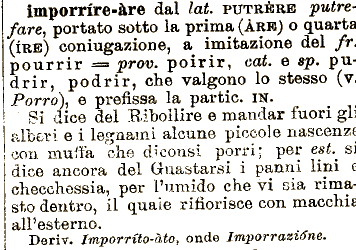 imporríre-àre dal lat. PUTRÈRE putre-
fare, portato sotto la prima (ÀRE) o quarta
(ÌRE) coniugazione, a imitazione del fr.
pourrir = prov. poirir, cat. e sp. pu-
drir, podrir, che valgono lo stesso (v.
Porro), e prefissa la partic. IN.
Si dice del Ribollire e mandar fuori gli
alberi e i legnami alcune piccole nascenze
con muffa che diconsi porri; per est. si
dice ancora del Guastarsi i panni lini e
checchessia, per l'umido che vi sia rima-
sto dentro, il quale rifiorisce con macchia
all'esterno.
Deriv. Imporríto-àto, onde Imporrazióne.